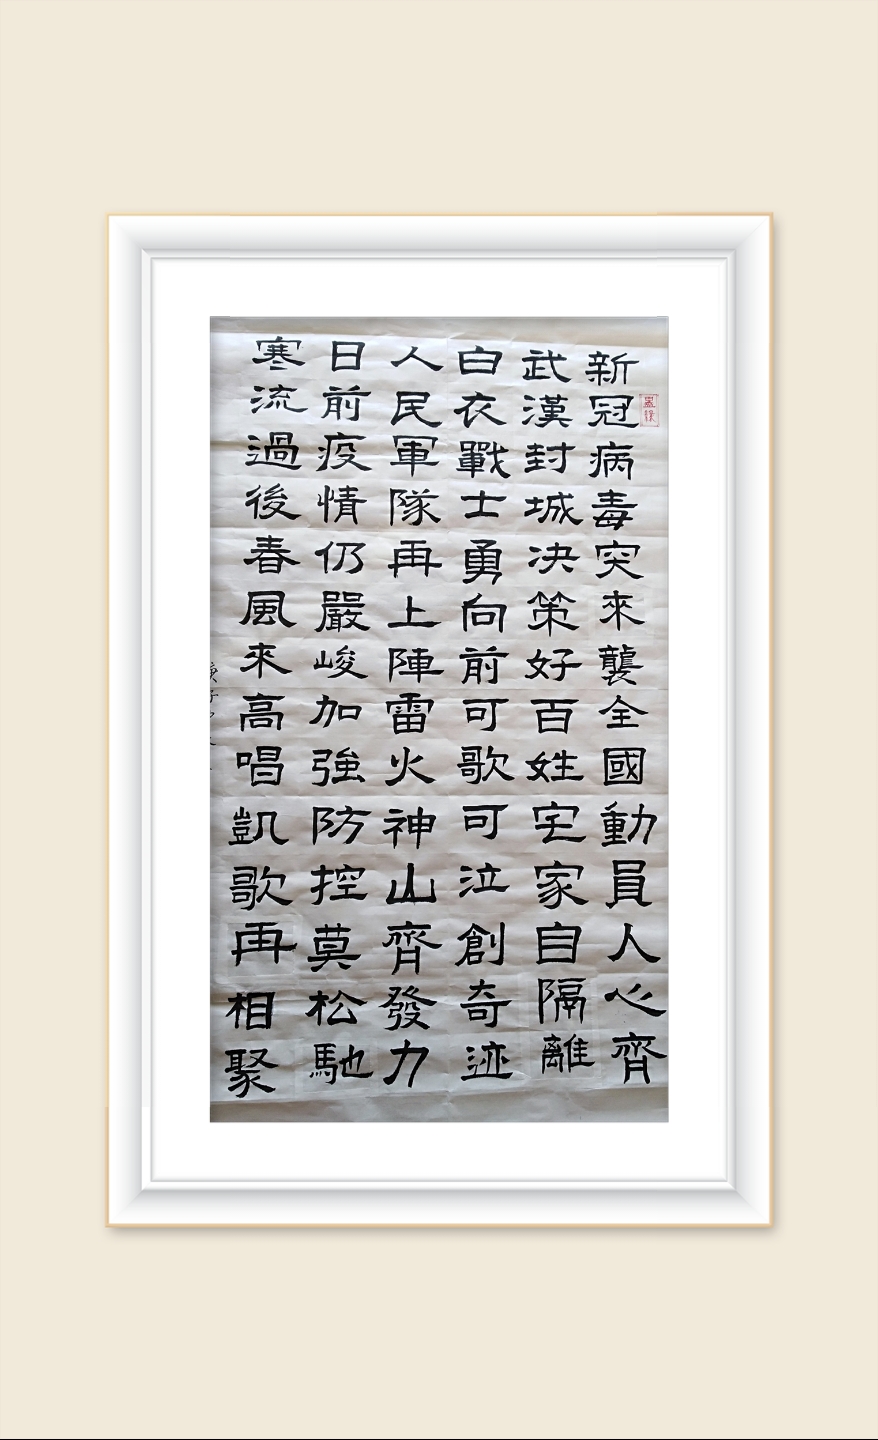 新冠病毒突來襲全國動員人心齊
武漢封城决策好百姓宅家自隔離
白衣戰士勇向前可歌可泣創奇迹
人民軍隊再上陣雷火神山齊發力
日前疫情仍嚴峻加強防控莫松馳
寒流過後春風來高唱凱歌再相聚
庚子